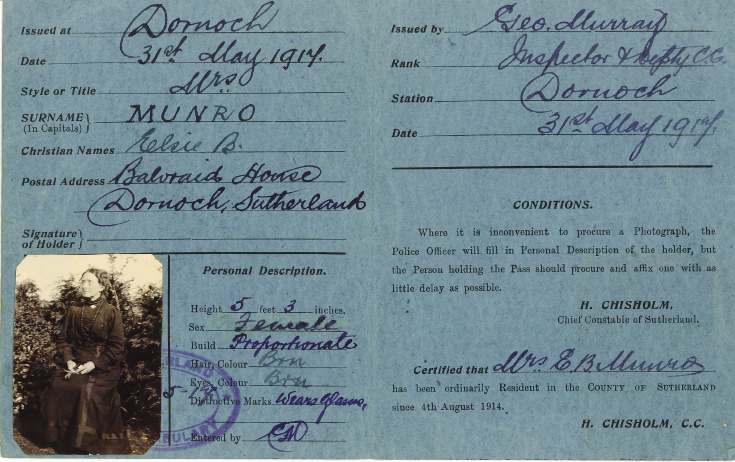 Issued at Dornoch
Date 31st May 1917.
Style or Title Mrs
SURNAME (In Capitals) MUNRO
Christian Names Elsie B.
Postal Address Balvraid House
Dornoch, Sutherland
Signature of Holder
Personal Description.
Height 5 feet 3 inches.
Sex Female
Build Proportionate
Hair, Colour Brn
Eyes, Colour Brn
Distinctive Marks Wears Glasses,
Entered by
Issued by Geo. Murray
Rank Inspector & Depty C.C.
Station Dornoch
Date 31st May 1917.
CONDITIONS.
Where it is inconvenient to procure a Photograph, the
Police Officer will fill in Personal Description of the holder, but
the Person holding the Pass should procure and affix one with as
little delay as possible.
H. CHISHOLM,
Chief Constable of Sutherland.
Certified that Mrs E. B. Munro
has been ordinarily Resident in the COUNTY OF SUTHERLAND
since 4th August 1914.
H. CHISHOLM, C.C.